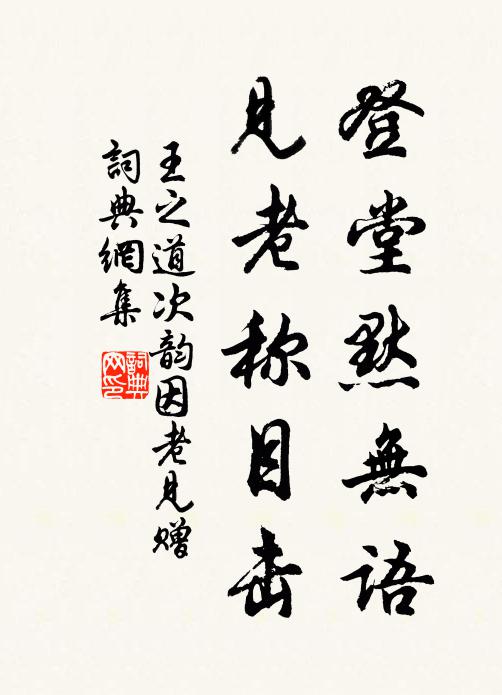 登堂默無語
見老称目击
王之道次韵因老見赠
詞典網集
詞典网印